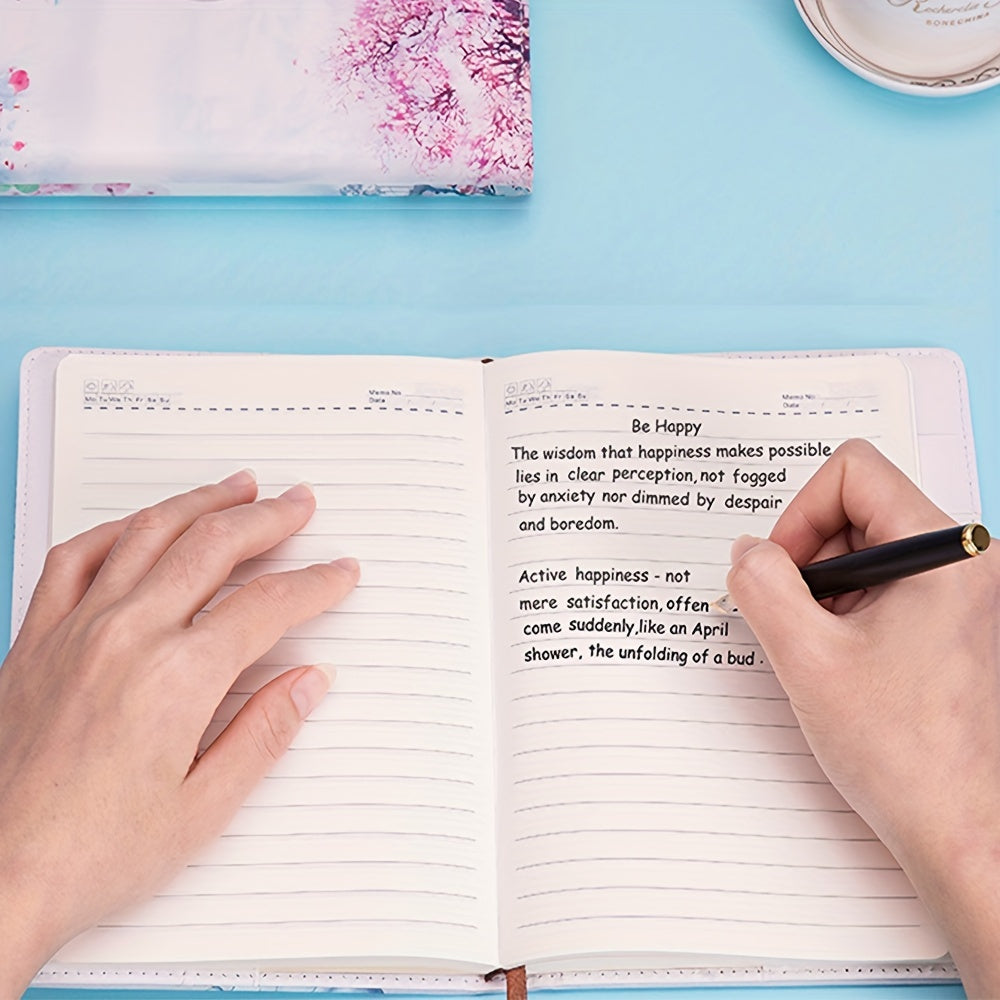 Recherche
BONECHINA
Mo Tu We Th Fr Sa Su
Memo No.
Date
Mo Tu We Th Fr Sa Su
Memo No.
Date
Be Happy
The wisdom that happiness makes possible
lies in clear perception, not fogged
by anxiety nor dimmed by despair
and boredom.
Active happiness - not
mere satisfaction, offen
come suddenly, like an April
shower, the unfolding of a bud.